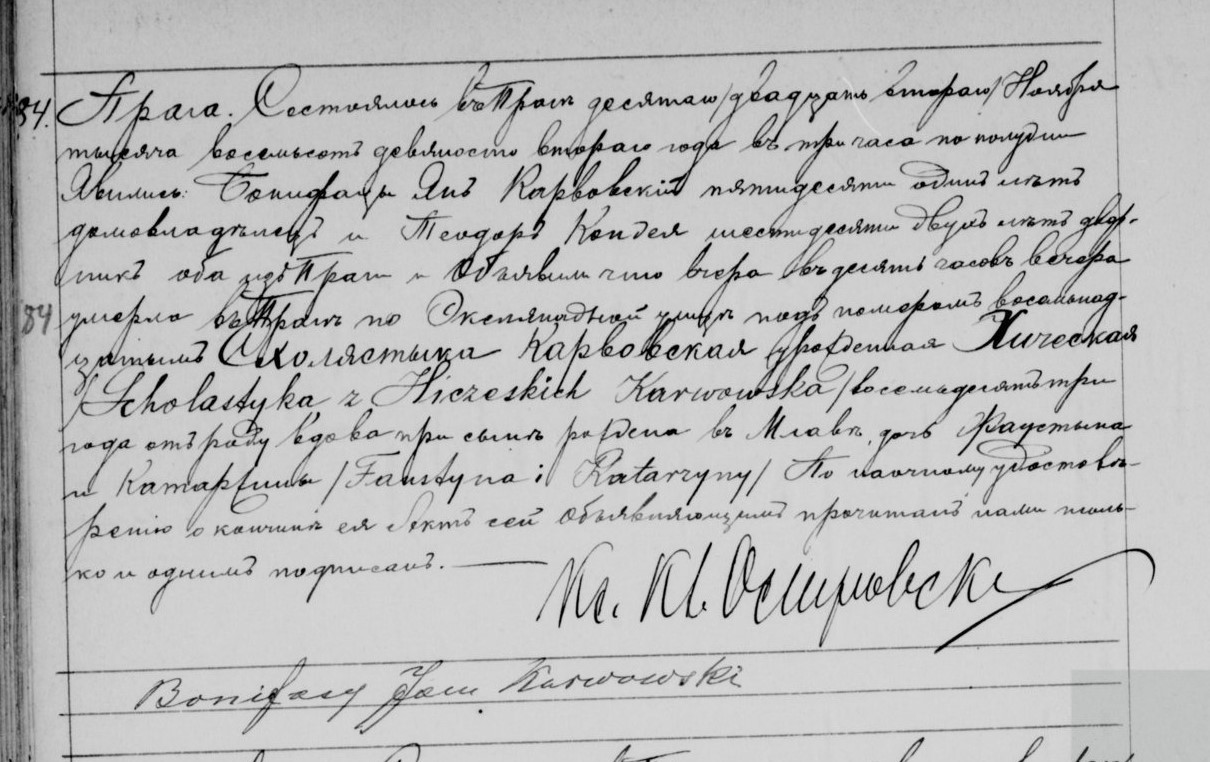 84. Прага. Состоялось въ Праге десятаго /двадцать втораго/ Ноября
тысяча восемьсотъ девяносто втораго года въ три часа по полудни
Явились: Бонифацы Янъ Карвовскій пятидесяти одинъ летъ
домовладелецъ и Теодоръ Кондея шестидесяти двухъ летъ двор-
никъ оба изъ Праги и Объявили что вчера въ десять часовъ вечера
84 умерла въ Праге по улице подъ номеромъ восемьнад-
цатымъ Схолястыка Карвовская урожденная Хическая
/Scholastyka z Hiczeskich Karwowska/ восемьдесятъ три
года отъ роду вдова при сыне рождена въ Млаве, дочь Фаустына
и Катаржины /Faustyna i Katarzyny/ По наочному удостове-
ренію о кончине ея Актъ сей Объявляющимъ прочитанъ нами толь-
ко и однимъ подписанъ.
Кс. Кв. Островски
Bonifacy Jan Karwowski